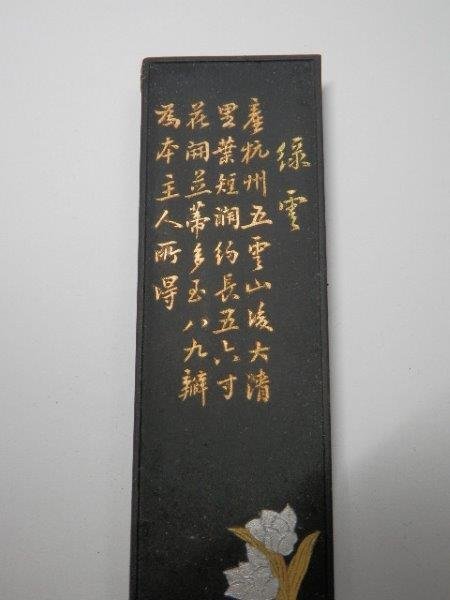 綠雲
產杭州五雲山後大清
里葉短濶約長五六寸
花開並蒂多至八九瓣
為本主人所得